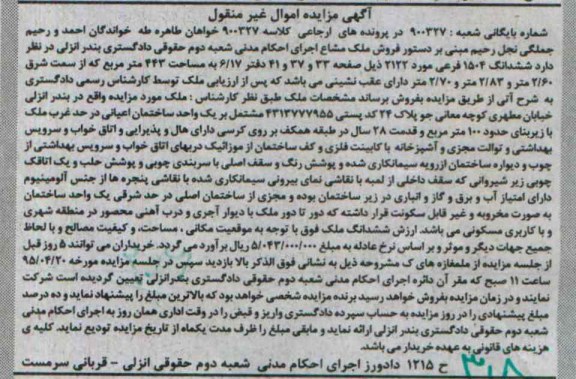 آگهی مزایده اموال غیر منقول
شماره بایگانی شعبه : ۹۰۰۳۲۷ در پرونده های ارجاعی کلاسه ۹۰۰۳۲۷ خواهان طاهره طه خواندگان احمد و رحیم
جملگی نجل رحیم مبنی بر دستور فروش ملک مشاع اجرای احکام مدنی شعبه دوم حقوقی دادگستری بندر انزلی در نظر
دارد ششدانگ ۱۵۰۴ فرعی مورد ۲۱۲۲ ذیل صفحه ۳۳ و ۳۷ و ۴۱ دفتر ۶/۱۷ به مساحت ۴۴۳ متر مربع که از سمت شرق
۲/۶۰ متر و ۲/۸۳ متر و ۲/۷۰ متر دارای عقب نشینی می باشد که پس از ارزیابی ملک توسط کارشناس رسمی دادگستری
به شرح آتی از طریق مزایده بفروش برساند مشخصات ملک طبق نظر کارشناس : ملک مورد مزایده واقع در بندر انزلی
خیابان مطهری کوچه معانی جو پلاک ۲۴ کد پستی ۴۳۱۳۷۷۷۹۵۵ مشتمل بر یک واحد ساختمان اعیانی در حد غرب ملک
با زیربنای حدود ۱۰۰ متر مربع و قدمت ۲۸ سال در طبقه همکف بر روی کرسی دارای هال و پذیرایی و اتاق خواب و سرویس
بهداشتی و توالت مجزی و آشپزخانه با کابینت فلزی و کف ساختمان از موزائیک دربهای اتاق خواب و سرویس بهداشتی از
چوب و دیواره ساختمان ازرویه سیمانکاری شده و پوشش رنگ و سقف اصلی با سربندی چوبی و پوشش حلب و یک اتاقک
چوبی زیر شیروانی که سقف داخلی از لمبه با نقاشی نمای بیرونی سیمانکاری شده با نقاشی پنجره ها از جنس آلومینیوم
دارای امتیاز آب و برق و گاز و انباری در زیر ساختمان بوده و مجزی از ساختمان اصلی در حد شرقی یک واحد ساختمان
به صورت مخروبه و غیر قابل سکونت قرار داشته که دور تا دور ملک با دیوار آجری و درب آهنی محصور در منطقه شهری
و با کاربری مسکونی می باشد. ارزش ششدانگ ملک فوق با توجه به موقعیت مکانی ، مساحت، و کیفیت مصالح و با لحاظ
جمیع جهات دیگر و موثر و بر اساس نرخ عادله به مبلغ ۵/۰۴۳/۰۰۰/۰۰۰ ریال برآورد می گردد. خریداران می توانند ۵ روز قبل
از جلسه مزایده از ملمغازه های ک مشروحه ذیل به نشانی فوق الذکر بالا بازدید سپس در جلسه مزایده مورخه ۹۵/۰۴/۲۰
ساعت ۱۱ صبح که مقر آن دائره اجرای احکام مدنی شعبه دوم حقوقی دادگستری بندرانزلی تعیین گردیده است شرکت
نمایند و در زمان مزایده بفروش خواهد رسید برنده مزایده شخصی خواهد بود که بالاترین مبلغ را پیشنهاد نماید و ده درصد
مبلغ پیشنهادی را در روز مزایده به حساب سپرده دادگستری واریز و قبض را در وقت اداری همان روز به اجرای احکام مدنی
شعبه دوم حقوقی دادگستری بندر انزلی ارائه نماید و مابقی مبلغ را ظرف مدت یکماه از تاریخ مزایده تودیع نماید. کلیه ی
هزینه های قانونی به عهده خریدار می باشد.
ح ۱۲۱۵ دادورز اجرای احکام مدنی شعبه دوم حقوقی انزلی - قربانی سرمست